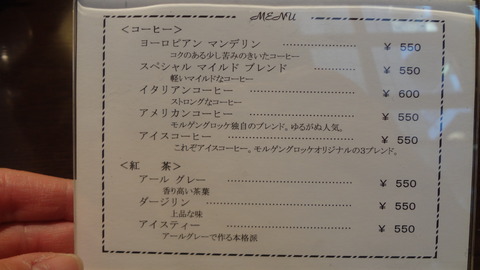 MENU
＜コーヒー＞
ヨーロピアン マンデリン ················ ￥ 550
コクのある少し苦みのきいたコーヒー
スペシャル マイルド ブレンド ········ ￥ 550
軽いマイルドなコーヒー
イタリアンコーヒー ························ ￥ 600
ストロングなコーヒー
アメリカンコーヒー ························ ￥ 550
モルゲングロッケ独自のブレンド。ゆるがぬ人気。
アイスコーヒー ································ ￥ 550
これぞアイスコーヒー。モルゲングロッケオリジナルの3ブレンド。
＜紅　茶＞
アール グレー ································ ￥ 550
香り高い茶葉
ダージリン ···································· ￥ 550
上品な味
アイスティー ································ ￥ 550
アールグレーで作る本格派